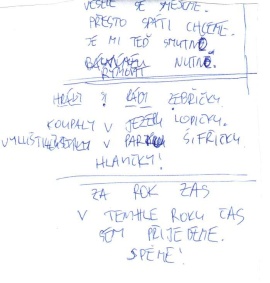 VESELE SE SMĚJEME.
PŘESTO SPÁTI CHCEME.
JE MI TEĎ SMUTNO,
NUTNĚ.
RÝMOVATI
HRÁDI I RÁDI ŽEBŘÍČKY.
KOUPALY V JEZEŘE LODIČKY.
V PARKU ŠIFŘIČKY.
HLAVIČKY!
ZA ROK ZAS
V TEMHLE ROKU ČAS
SEM PŘIJEDEME.
SPĚME!